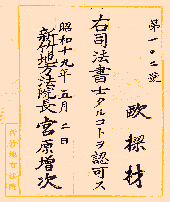 第一〇二號
歐樑材
右司法書士タルコトヲ認可ス
昭和十九年五月二日
新竹地方法院長宮原增次
新竹地方法院